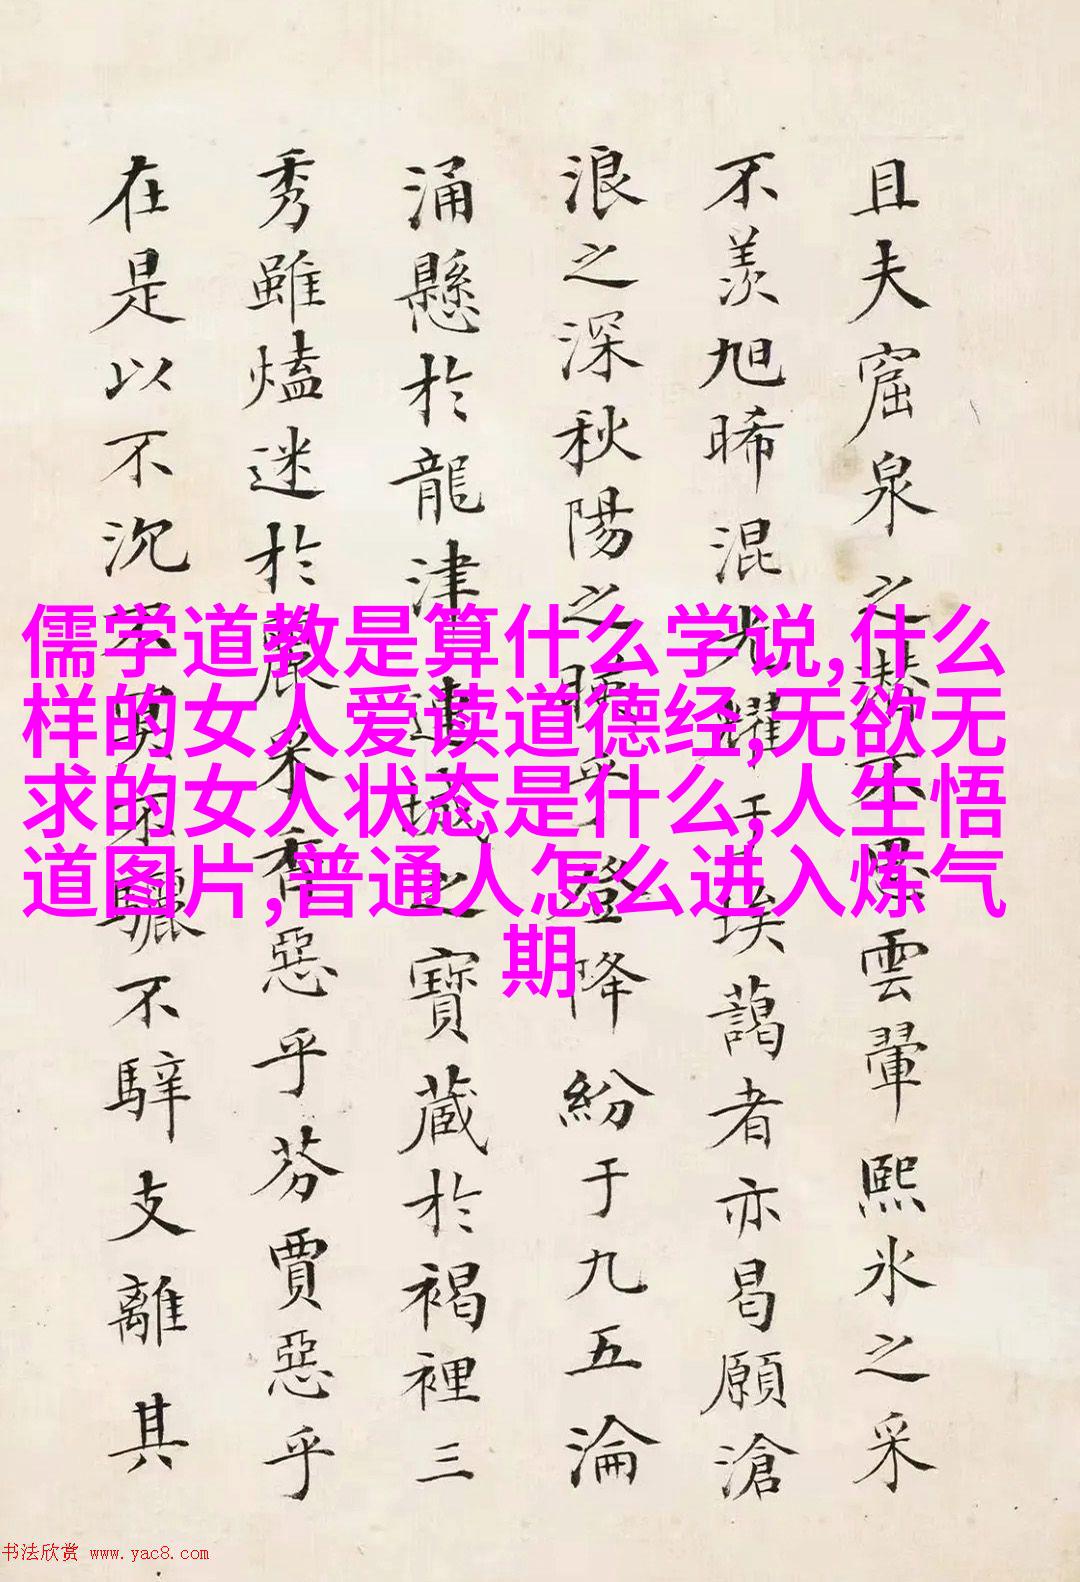 且夫窟泉之潜不累雲翬熙氷之采
不羨旭晞混光耀于埃藹者亦曷願滄
浪之深秋陽之暎乎登降紛于九五淪
涌懸於龍津連城之寶藏於褐裡三
秀雖熆迷於香惡乎芬賈惡乎
在是以不沉不驪不騂支離其
儒学道教是算什么学说,什么
样的女人爱读道德经,无欲无
求的女人状态是什么,人生悟
道图片,普通人怎么进入炼气
期
书法欣赏 www.yac8.com